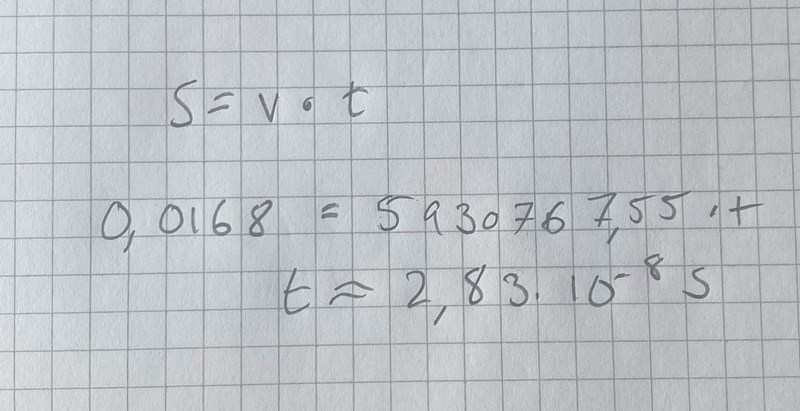 S = v • t
0,0168 = 5930767,55 · t
t ≈ 2,83 · 10⁻⁸ s